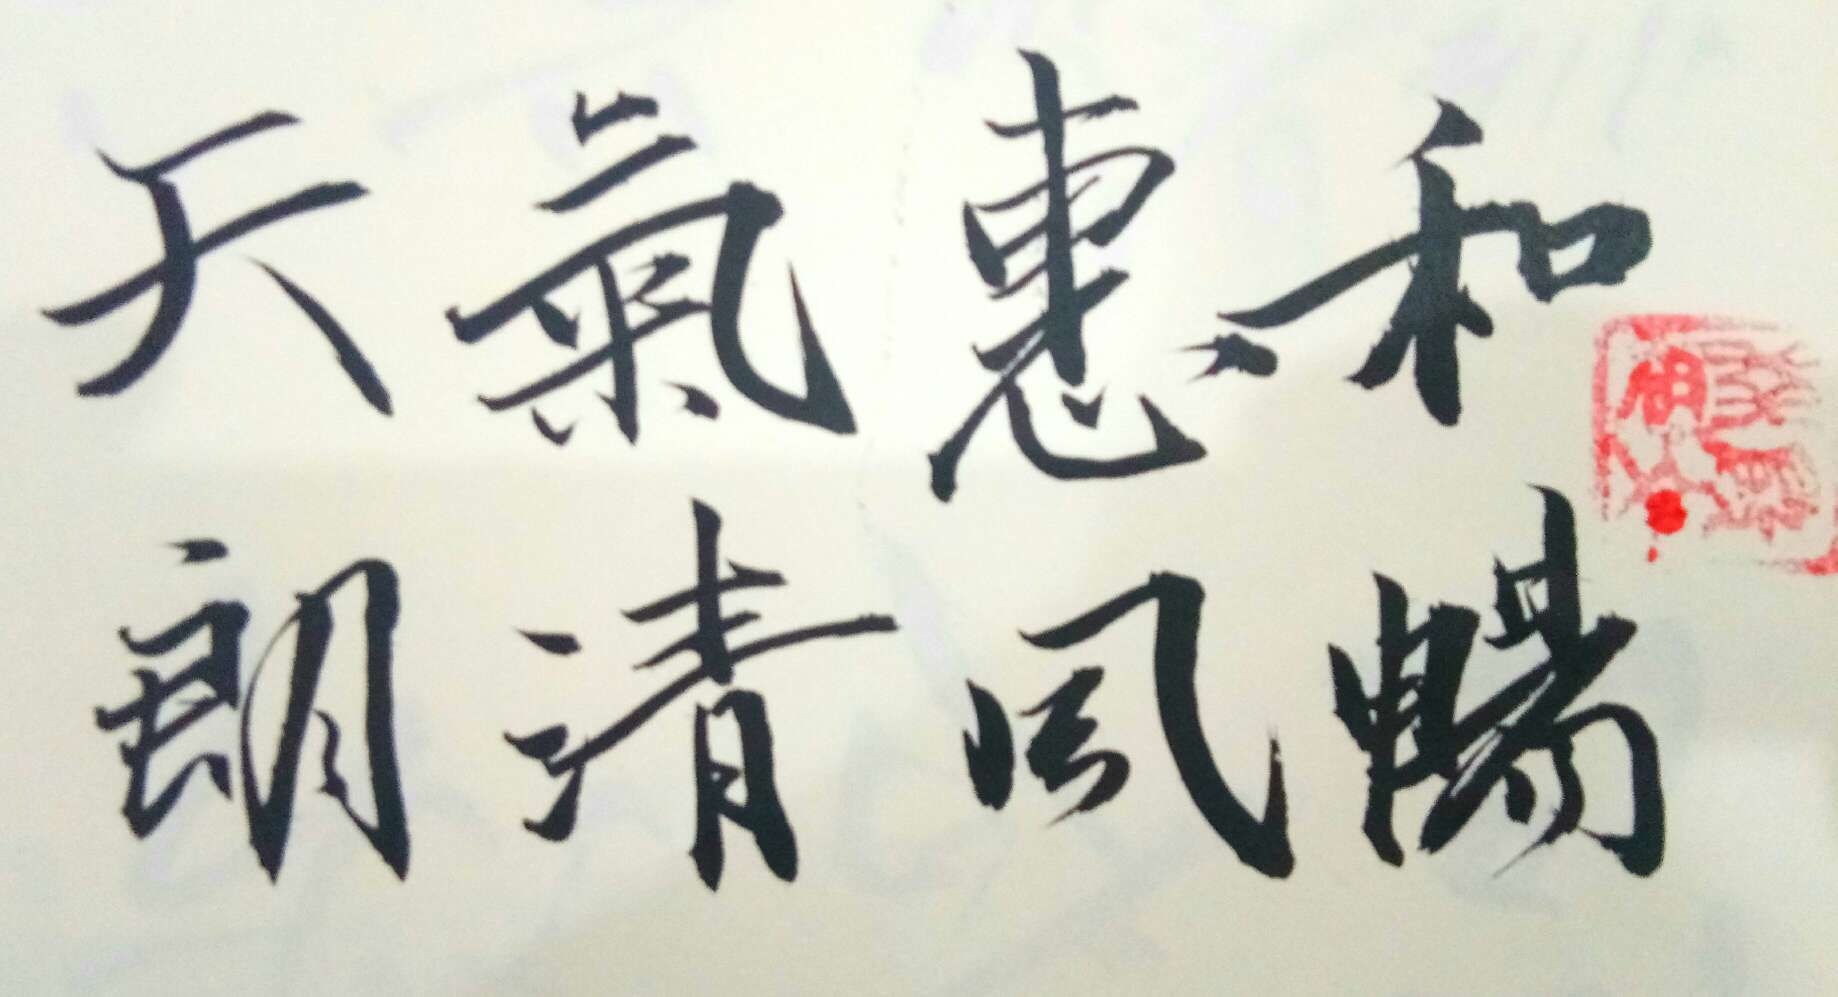 天朗
氣清
惠風
和暢